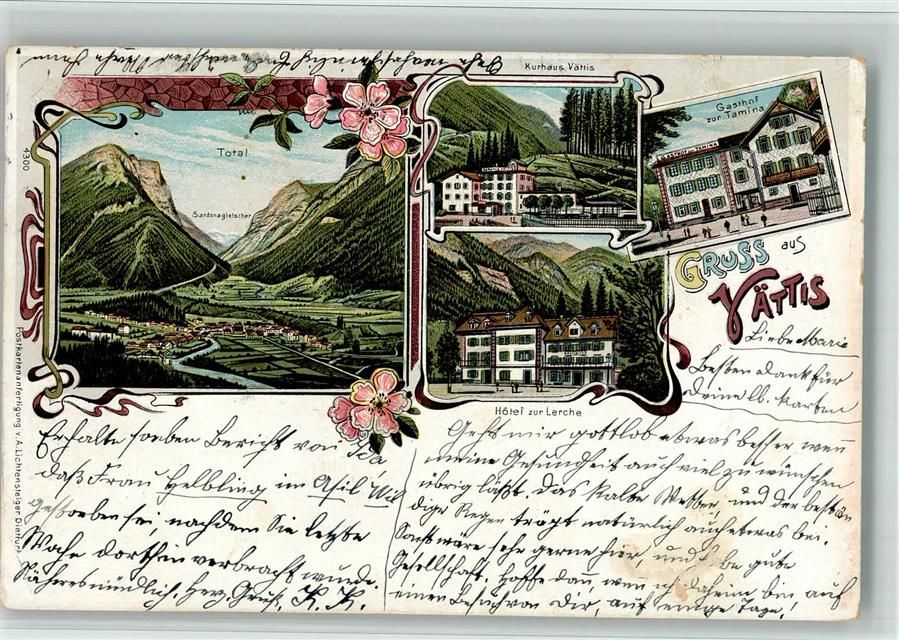 Kurhaus Vättis
Gasthof
zur Tamina
GASTHOF ZUR TAMINA
Total
Sardonagletscher
4300
GRUSS aus
VÄTTIS
Hôtel zur Lerche
Postkartenanfertigung v. A. Lichtensteiger Dietfurt
Liebe Marie
Besten Dank für
deine lb. Karten
Geht's mir gottlob etwas besser wenn
meine Gesundheit auch viel zu wünschen
übrig läßt. Das kalte Wetter, und der bestän
dige Regen trägt natürlich auch etwas bei.
Sonst wäre sehr gerne hier, und be gute
Gesellschaft. Hoffe dann, wenn ich daheim bin auf
einen Besuch von Dir, auf einige Tage!
Erhalte soeben Bericht von Ida
daß Frau Helbling im Asil Wil
gestorben sei, nachdem Sie letzte
Woche dorthin verbracht wurde.
Näheres mündlich. Herz. Gruß, K. K.